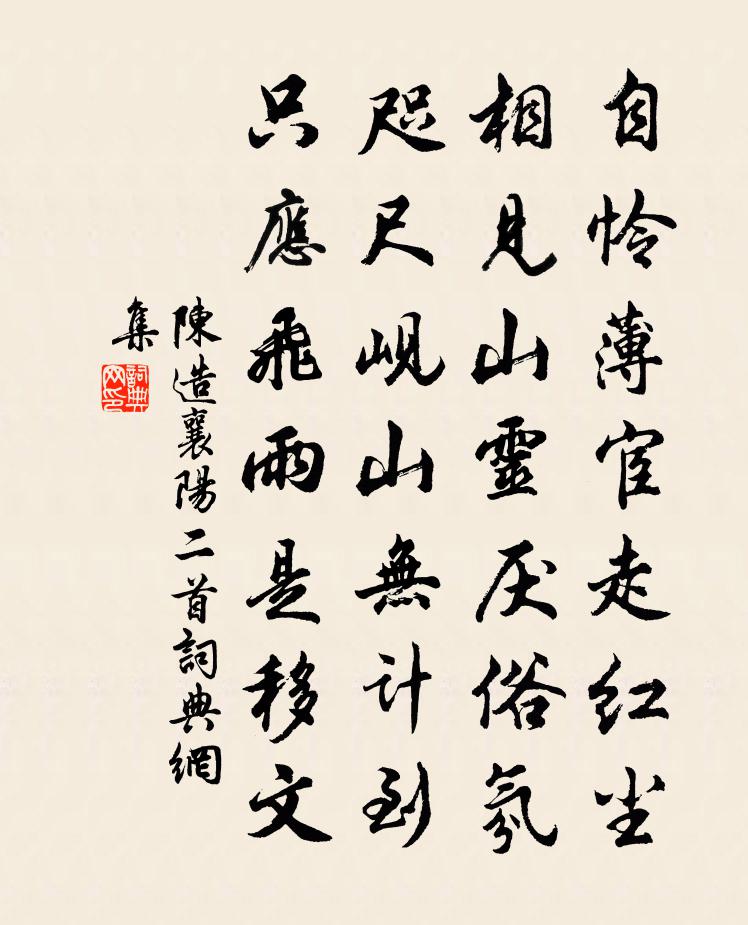 自怜薄宦走红尘
相見山靈厌俗氛
咫尺峴山無計到
只應飛雨是移文
陳造襄陽二首詞典網
集
詞典
网印